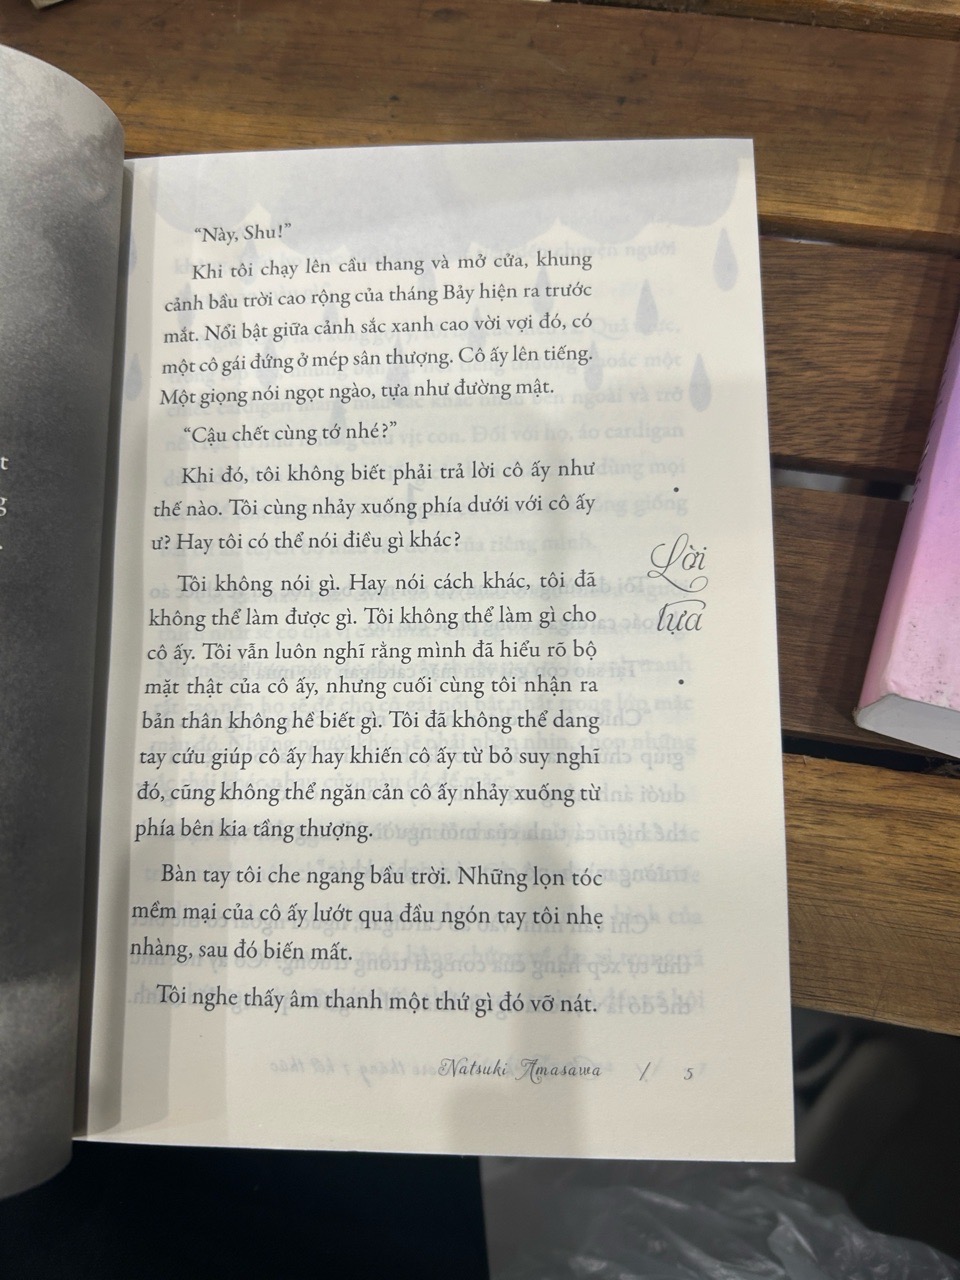 “Này, Shu!”
Khi tôi chạy lên cầu thang và mở cửa, khung
cảnh bầu trời cao rộng của tháng Bảy hiện ra trước
mắt. Nổi bật giữa cảnh sắc xanh cao vời vợi đó, có
một cô gái đứng ở mép sân thượng. Cô ấy lên tiếng.
Một giọng nói ngọt ngào, tựa như đường mật.
“Cậu chết cùng tớ nhé?”
Khi đó, tôi không biết phải trả lời cô ấy như
thế nào. Tôi cùng nhảy xuống phía dưới với cô ấy
ư? Hay tôi có thể nói điều gì khác?
Tôi không nói gì. Hay nói cách khác, tôi đã
không thể làm được gì. Tôi không thể làm gì cho
cô ấy. Tôi vẫn luôn nghĩ rằng mình đã hiểu rõ bộ
mặt thật của cô ấy, nhưng cuối cùng tôi nhận ra
bản thân không hề biết gì. Tôi đã không thể dang
tay cứu giúp cô ấy hay khiến cô ấy từ bỏ suy nghĩ
đó, cũng không thể ngăn cản cô ấy nhảy xuống từ
phía bên kia tầng thượng.
Bàn tay tôi che ngang bầu trời. Những lọn tóc
mềm mại của cô ấy lướt qua đầu ngón tay tôi nhẹ
nhàng, sau đó biến mất.
Tôi nghe thấy âm thanh một thứ gì đó vỡ nát.
Lời
tựa
Natsuki Amasawa / 5